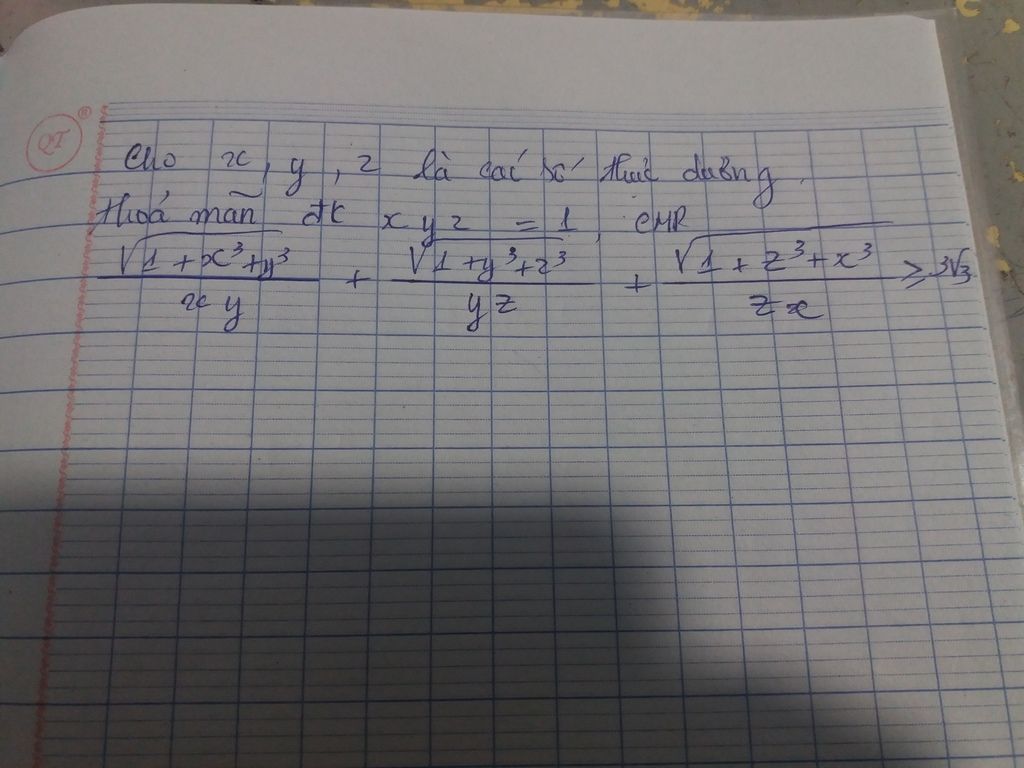 QT
Cho x, y, z là các số thực dương.
Thoả mãn đk xyz = 1, CMR
\frac{\sqrt{1+x^3+y^3}}{xy} + \frac{\sqrt{1+y^3+z^3}}{yz} + \frac{\sqrt{1+z^3+x^3}}{zx} ≥ 3\sqrt{3}